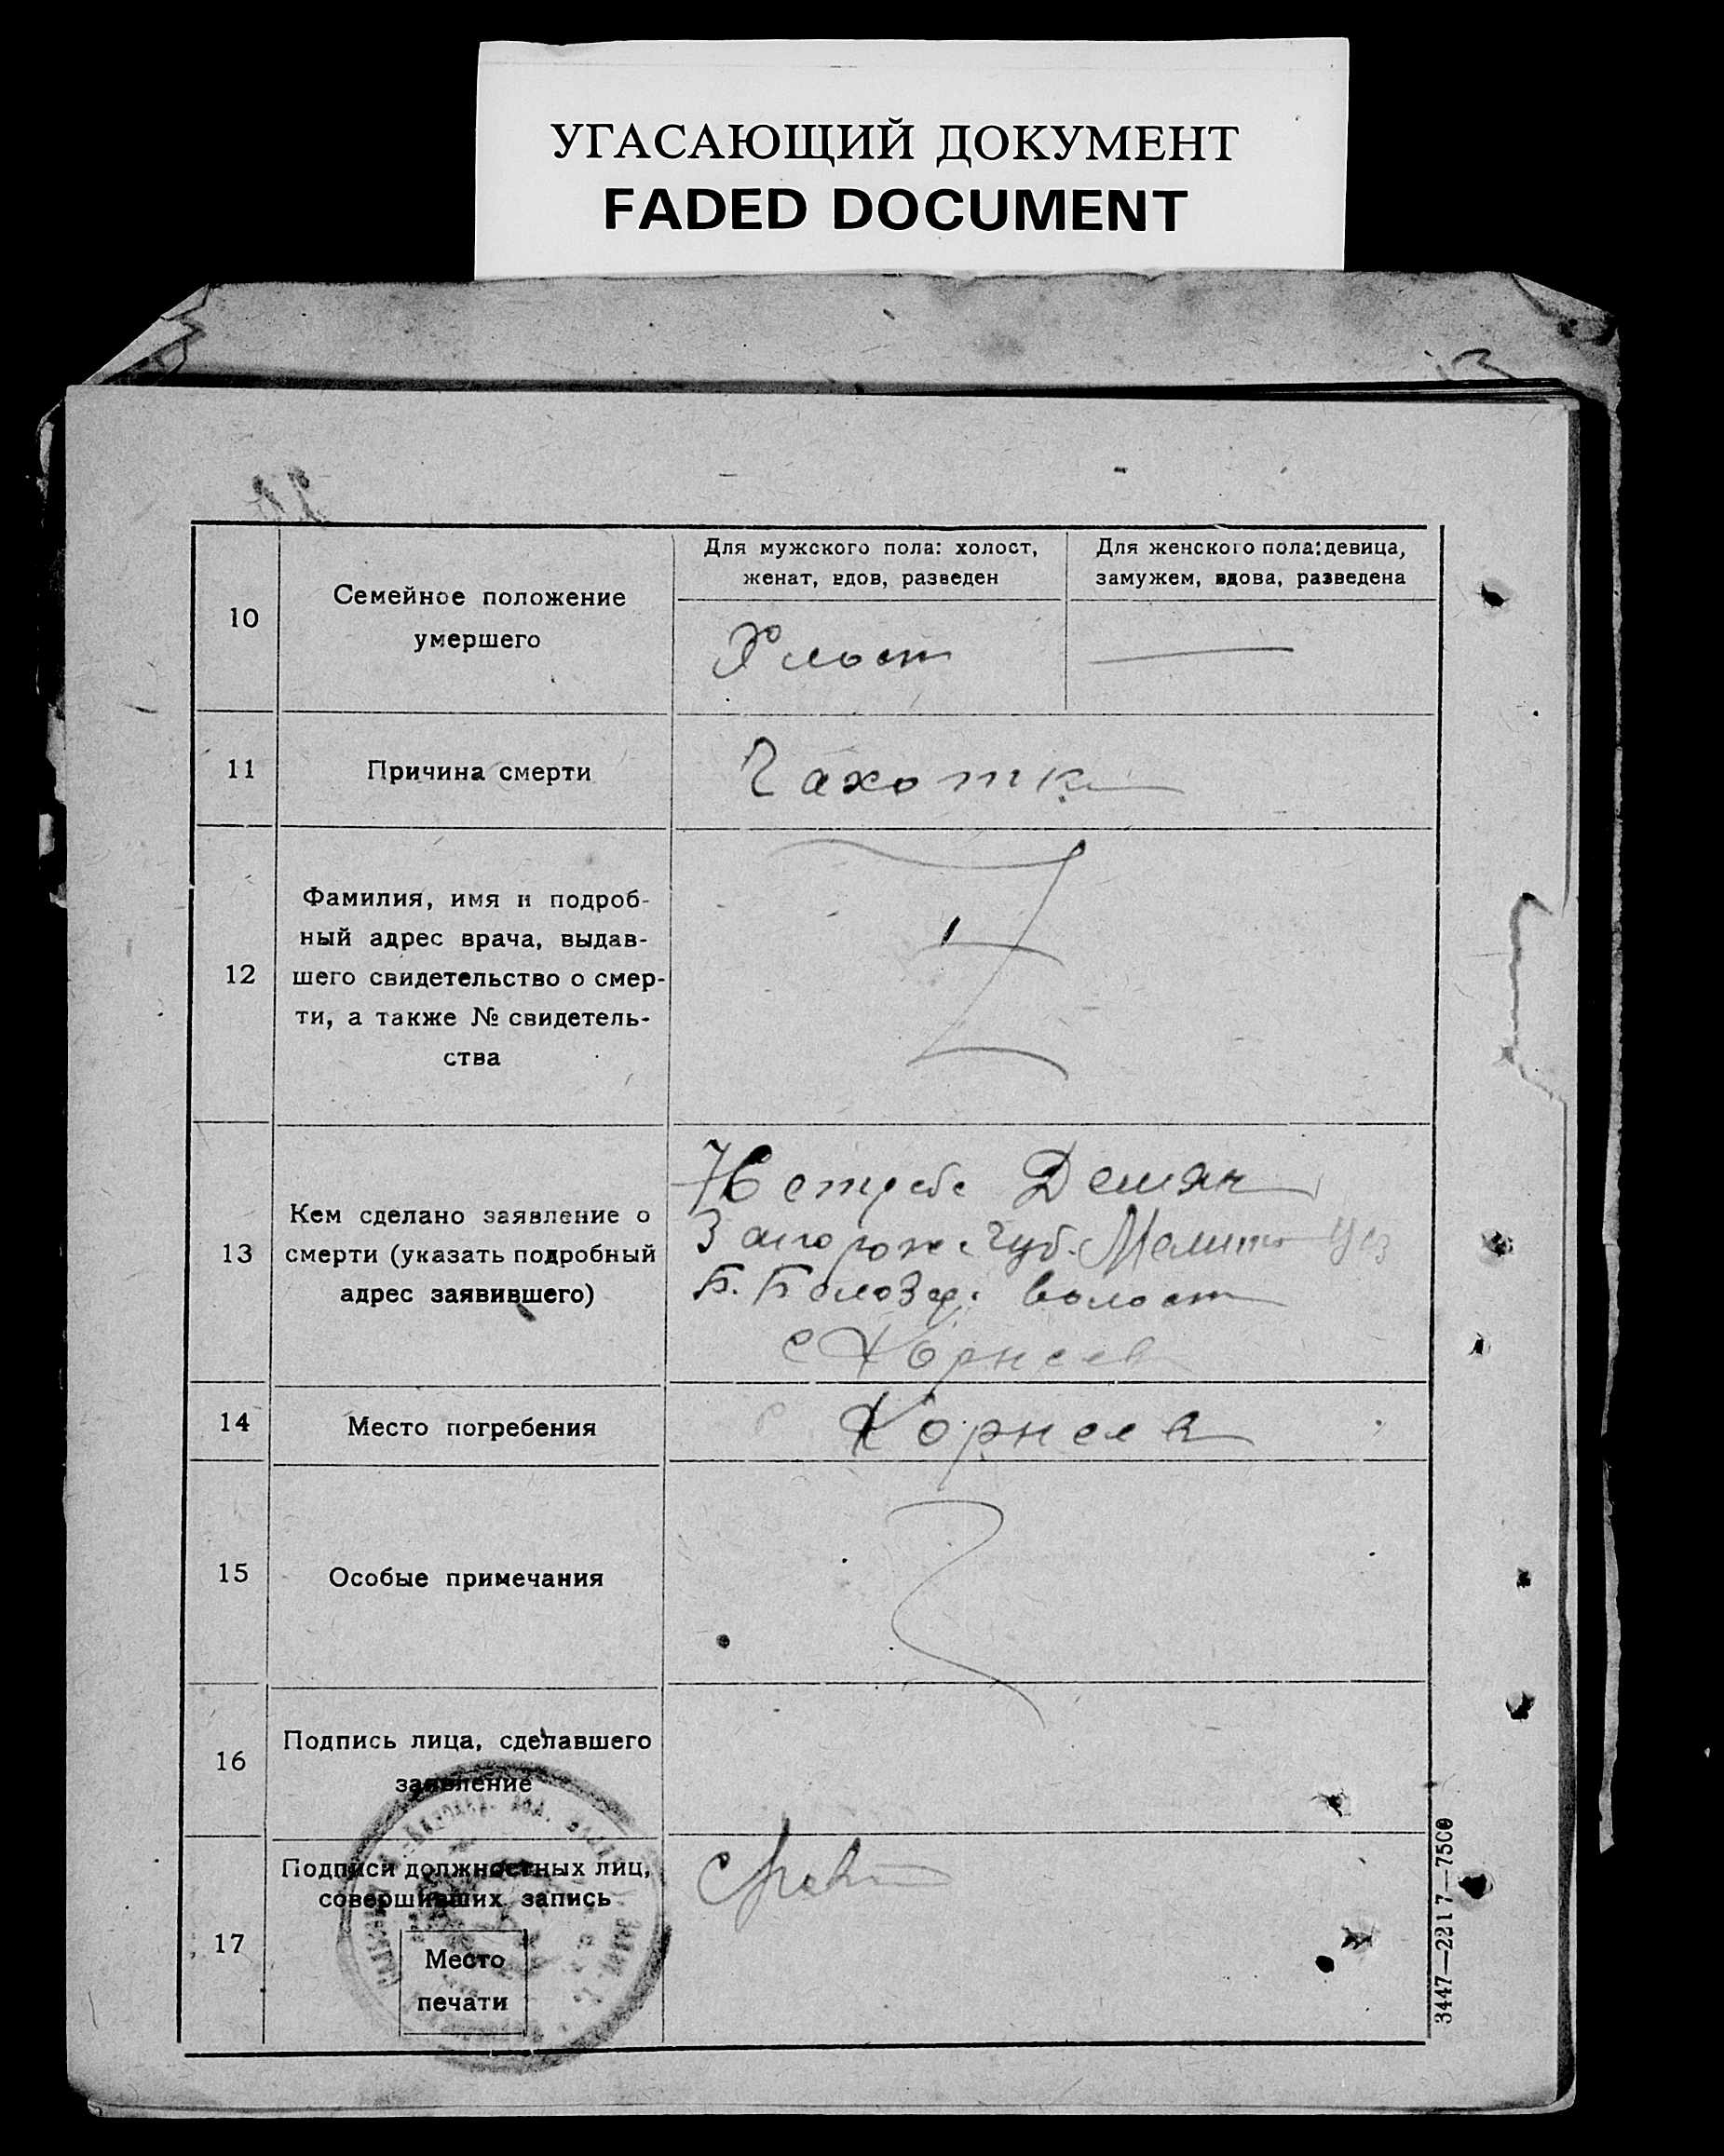 УГАСАЮЩИЙ ДОКУМЕНТ
FADED DOCUMENT
10
Семейное положение
умершего
Для мужского пола: холост,
женат, вдов, разведен
Для женского пола: девица,
замужем, вдова, разведена
Хлост
11
Причина смерти
Чахотка
12
Фамилия, имя и подроб-
ный адрес врача, выдав-
шего свидетельство о смер-
ти, а также № свидетель-
ства
13
Кем сделано заявление о
смерти (указать подробный
адрес заявившего)
Демян
Запорож. Губ. Мелит Уез
Б. Белозер. волост
с Корнеев
14
Место погребения
Корнеев
15
Особые примечания
16
Подпись лица, сделавшего
заявление
17
Подписи должностных лиц,
совершивших запись
Место
печати
3447—2217—7500